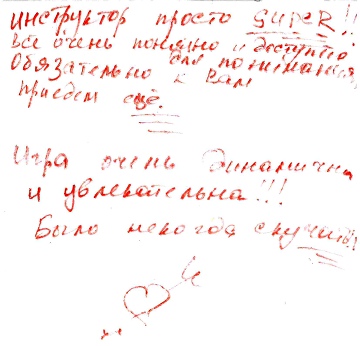 инструктор просто SUPER!!
Все очень понятно и доступно
для понимания,
Обязательно к вам
приедем ещё.
Игра очень динамична
и увлекательна!!!
Было некогда скучать!